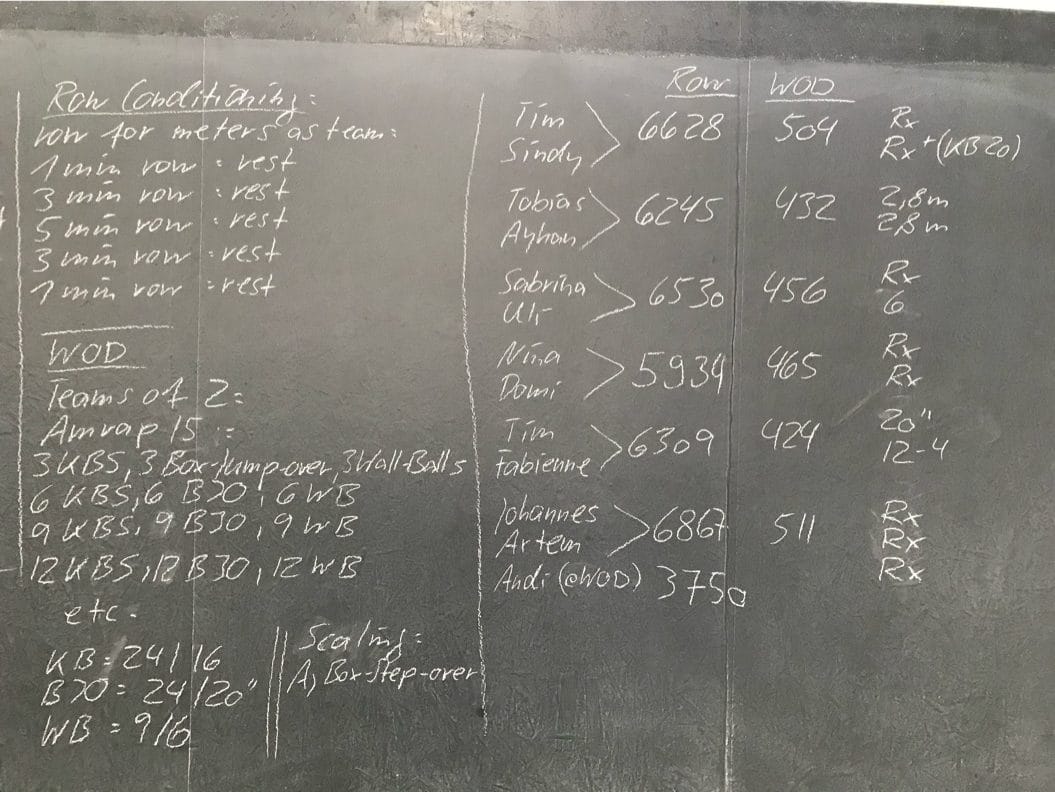 Row Conditioning:
row for meters as team:
1 min row : rest
3 min row : rest
5 min row : rest
3 min row : rest
1 min row : rest
WOD
Teams of 2:
Amrap 15 :
3 KBS, 3 Box-Jump-over, 3 Wall-Balls
6 KBS, 6 BJO, 6 WB
9 KBS, 9 BJO, 9 WB
12 KBS, 12 BJO, 12 WB
etc.
KB = 24/16
BJO = 24/20"
WB = 9/6
Scaling:
A) Box-Step-over
Row WOD
Tim
Sindy
6628 504
Rx
Rx+(KB20)
Tobias
Ayhan
6245 432
2,8m
2,8m
Sabrina
Uli
6530 456
Rx
6
Nina
Domi
5934 465
Rx
Rx
Tim
Fabienne
6309 424
20"
12-4
Johannes
Artem
6867 511
Rx
Rx
Andi (@WOD) 3750
Rx